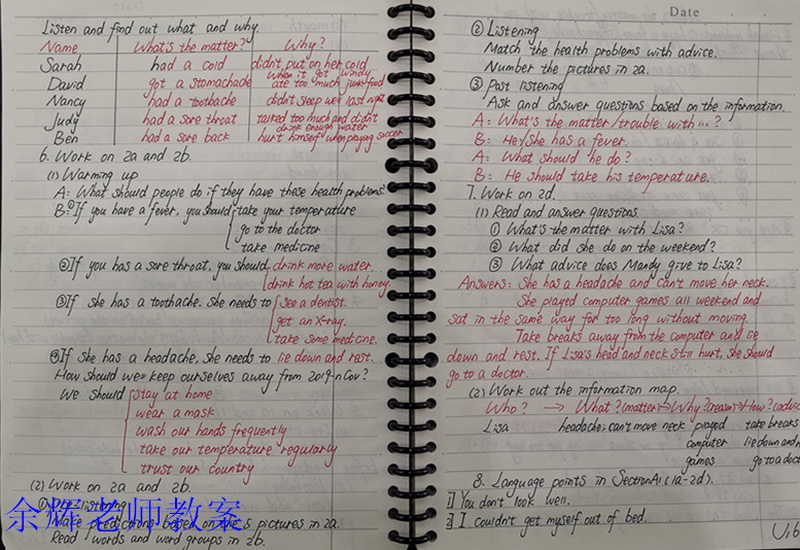 Listen and find out what and why.
Name What's the matter? Why?
Sarah had a cold didn't put on her cold
when it got windy
David got a stomachache ate too much junk food
Nancy had a toothache didn't sleep well last night
Judy had a sore throat talked too much and didn't
drink enough water
Ben had a sore back hurt himself when playing soccer
6. Work on 2a and 2b.
(1) Warming up
A: What should people do if they have these health problems?
B: ①If you have a fever, you should take your temperature
go to the doctor
take medicine
②If you has a sore throat, you should drink more water.
drink hot tea with honey.
③If she has a toothache, she needs to see a dentist.
get an X-ray.
take some medicine.
④If she has a headache, she needs to lie down and rest.
How should we keep ourselves away from 2019-nCov?
We should stay at home
wear a mask
wash our hands frequently
take our temperature regularly
trust our country
(2) Work on 2a and 2b.
① Pre-listening
Make predictions based on the 5 pictures in 2a.
Read words and word groups in 2b.
余辉老师教案
Date
② Listening
Match the health problems with advice.
Number the pictures in 2a.
③ Post listening
Ask and answer questions based on the information.
A: What's the matter/trouble with ...?
B: He/She has a fever.
A: What should he do?
B: He should take his temperature.
7. Work on 2d.
(1) Read and answer questions
① What's the matter with Lisa?
② What did she do on the weekend?
③ What advice does Mandy give to Lisa?
Answers: She has a headache and can't move her neck.
She played computer games all weekend and
sat in the same way for too long without moving.
Take breaks away from the computer and lie
down and rest. If Lisa's head and neck still hurt, she should
go to a doctor.
(2) Work out the information map.
Who? → What? (matter) → Why? (reason) → How? (advice
Lisa headache; can't move neck played take breaks
computer lie down and r
games go to a doct
8. Language points in SectionA1 (1a-2d).
1] You don't look well.
2] I couldn't get myself out of bed.